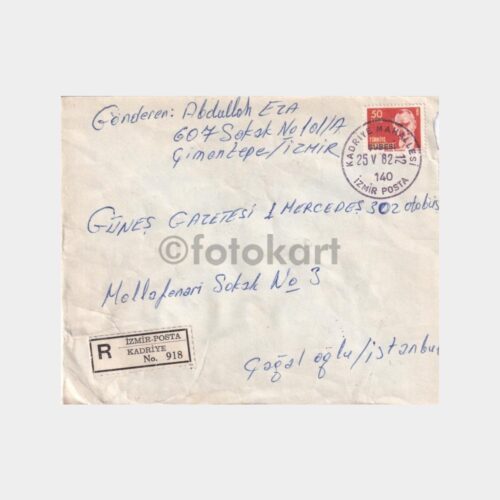 Gönderen: Abdullah EZA
607 Sokak No 101/A
Çimentepe/İZMİR
50
TÜRKİYE
KADRİYE MAHALLESİ
ŞUBESİ
25 V 82-12
140
İZMİR POSTA
GÜNEŞ GAZETESİ 1 MERCEDEŞ 302 otobüs
©fotokart
Mollafenari Sokak No 3
R
İZMİR-POSTA
KADRİYE
No. 918
Çağaloğlu/istanbul